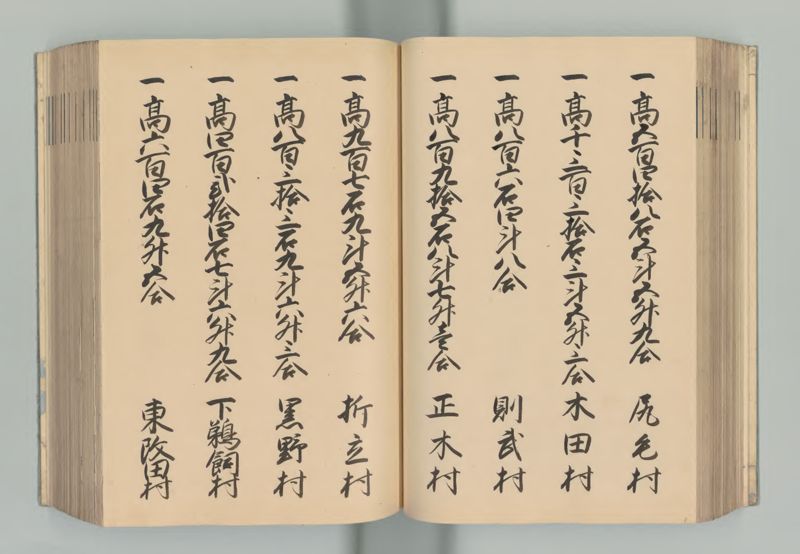 一高五百四拾八石五斗五升九合 尻毛村
一高千三百三拾石三斗五升三合 木田村
一高八百六石四斗八合 則武村
一高八百九拾五石八斗七升壱合 正木村
一高九百七石九斗五升六合 折立村
一高八百三拾三石九斗六升三合 黒野村
一高四百弐拾四石七斗六升九合 下鵜飼村
一高六百四石九升五合 東改田村